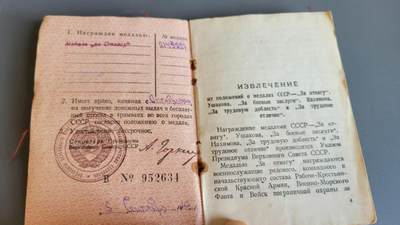 1. Награжден медалями:
№ медали
медаль „за Отвагу“
2. Имеет право, начиная с
на получение денежных выдач и бесплатный
в трамваях во всех городах
СССР, согласно положению о медали.
Удостоверение бессрочное.
Секретарь Президиума
Верховного Совета СССР
А. Горкин
В № 952634
ИЗВЛЕЧЕНИЕ
из положений о медалях СССР—„За отвагу“,
Ушакова, „За боевые заслуги“, Нахимова,
„За трудовую доблесть“ и „За трудовое
отличие“
Награждение медалями СССР—„За отвагу“,
Ушакова, „За боевые заслуги“,
Нахимова, „За трудовую доблесть“ и „За
трудовое отличие“ производится Указом
Президиума Верховного Совета СССР.
Медалью „За отвагу“ награждаются
военнослужащие рядового, и
начальствующего состава Рабоче-Крестьянской
Красной Армии, Военно-Морского
Флота и Войск пограничной охраны за